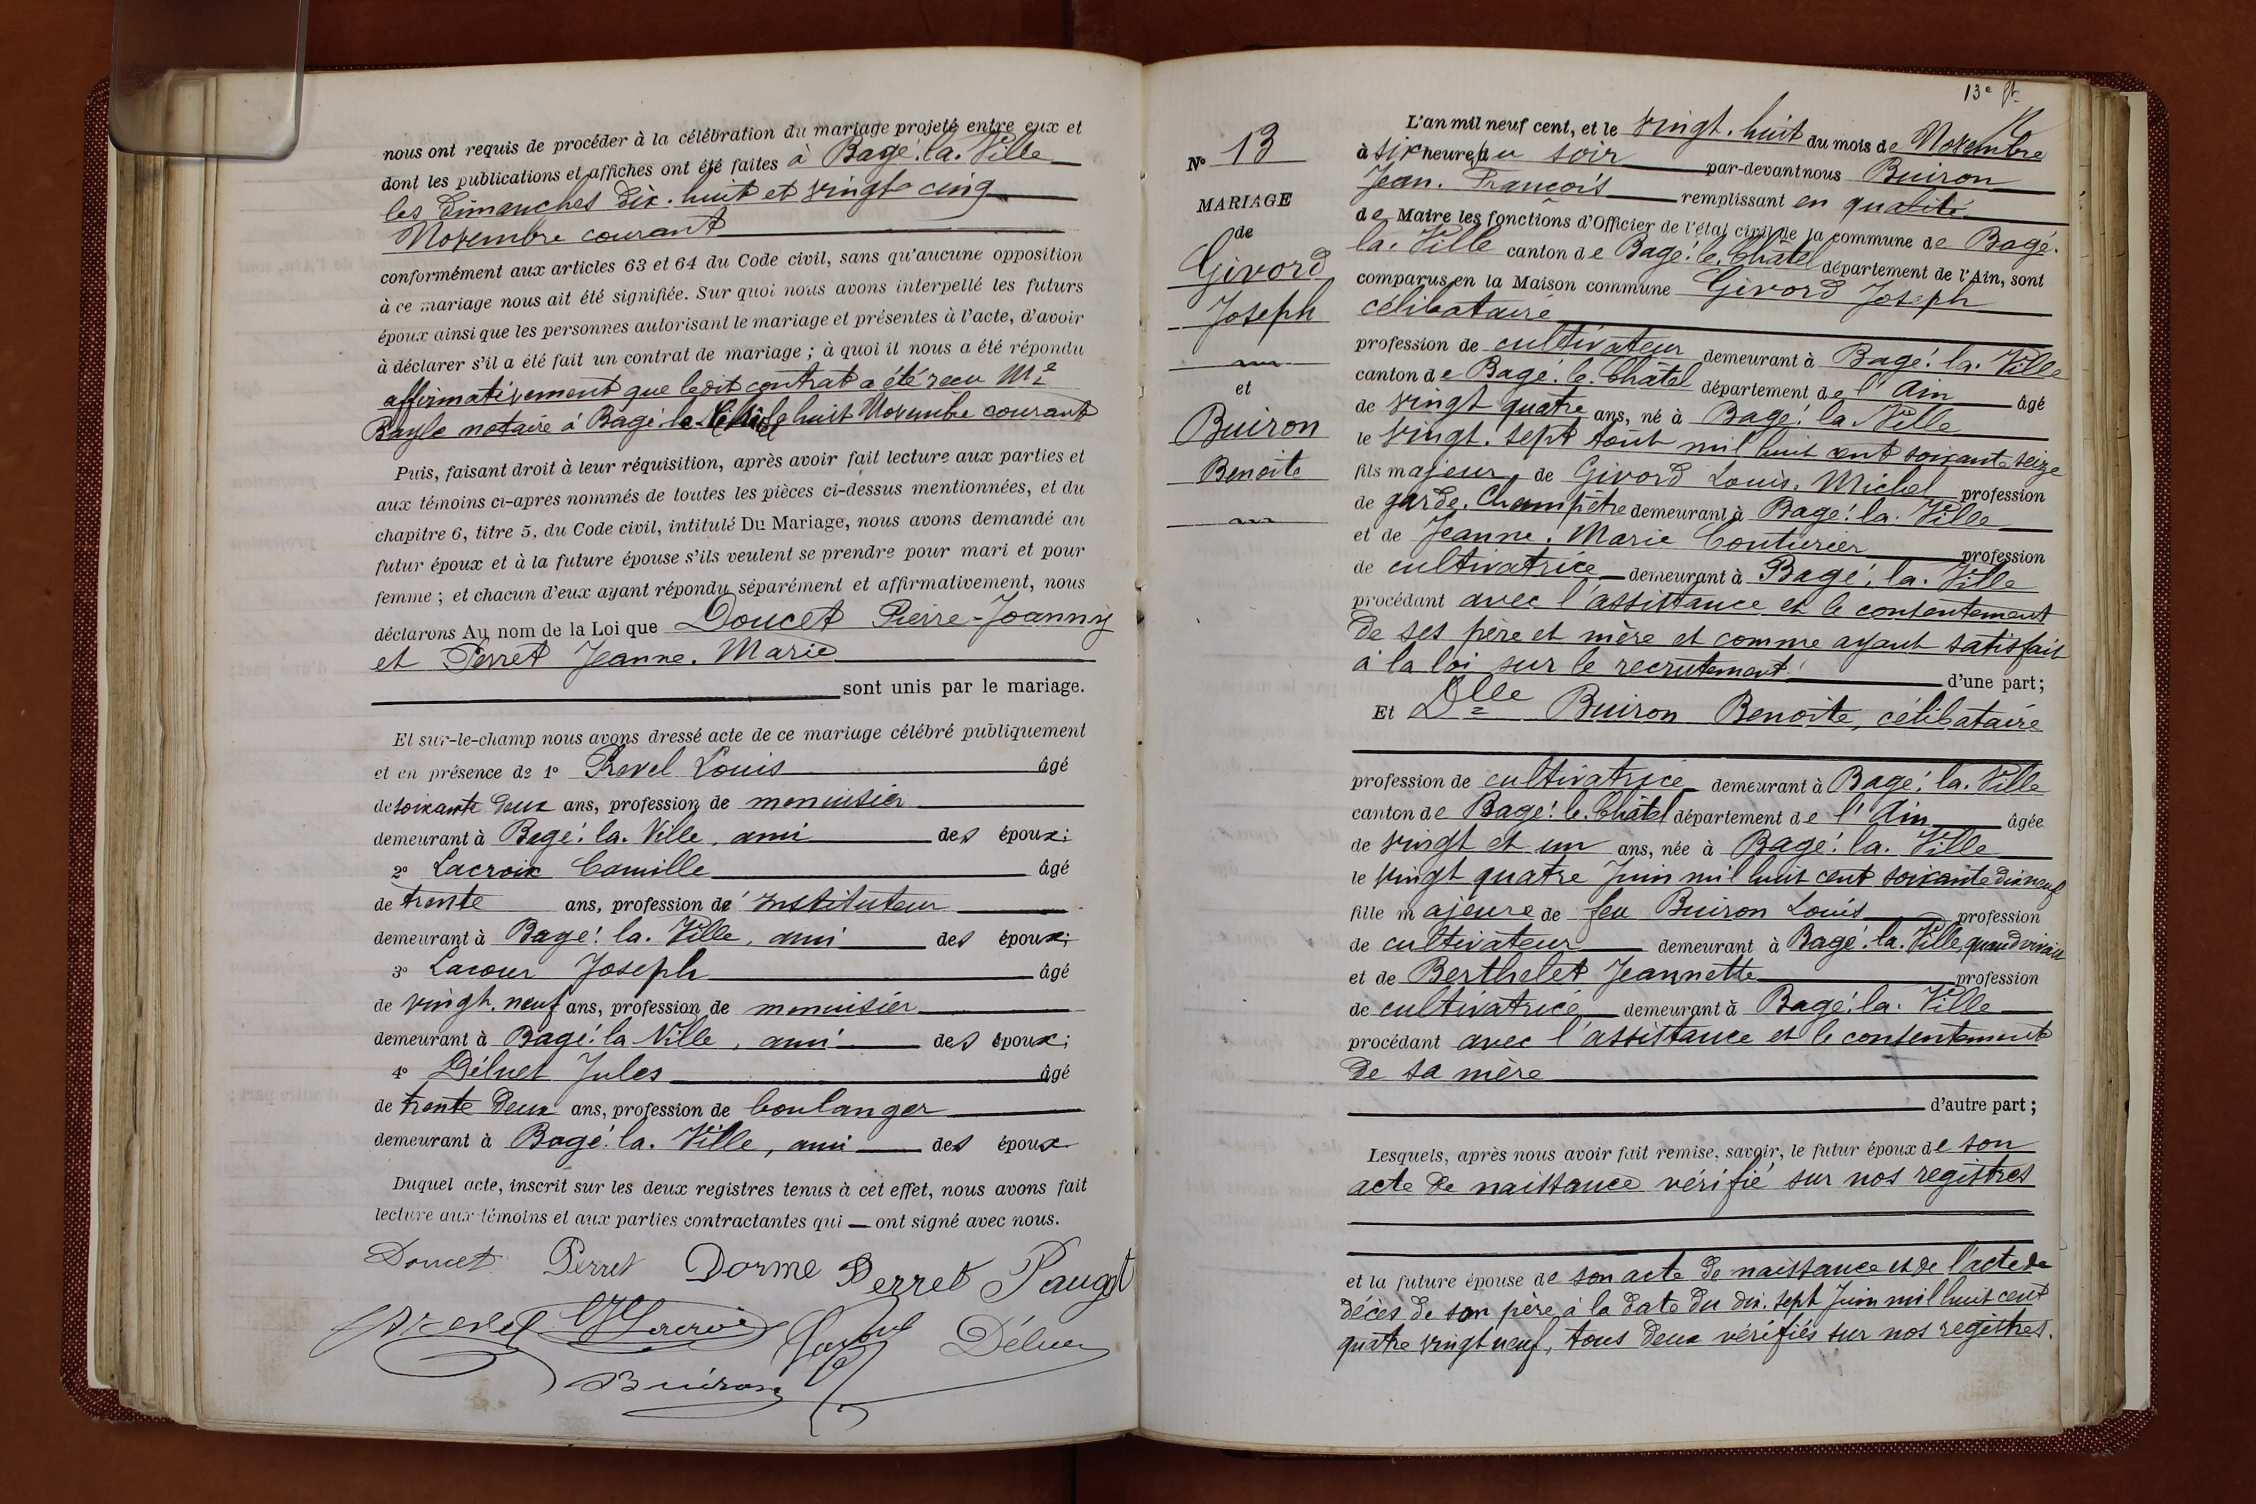 nous ont requis de procéder à la célébration du mariage projeté entre eux et
dont les publications et affiches ont été faites à Bagé-la-Ville
les dimanches dix-huit et vingt cinq
Novembre courant
conformément aux articles 63 et 64 du Code civil, sans qu'aucune opposition
à ce mariage nous ait été signifiée. Sur quoi nous avons interpellé les futurs
époux ainsi que les personnes autorisant le mariage et présentes à l'acte, d'avoir
à déclarer s'il a été fait un contrat de mariage ; à quoi il nous a été répondu
affirmativement que ledit contrat a été reçu Me
Bayle notaire à Bagé-le- le huit Novembre courant
Puis, faisant droit à leur réquisition, après avoir fait lecture aux parties et
aux témoins ci-après nommés de toutes les pièces ci-dessus mentionnées, et du
chapitre 6, titre 5, du Code civil, intitulé Du Mariage, nous avons demandé au
futur époux et à la future épouse s'ils veulent se prendre pour mari et pour
femme ; et chacun d'eux ayant répondu séparément et affirmativement, nous
déclarons Au nom de la Loi que Doucet Pierre-Joanny
et Perret Jeanne-Marie
sont unis par le mariage.
Et sur-le-champ nous avons dressé acte de ce mariage célébré publiquement
et en présence de 1° Prevel Louis âgé
de soixante deux ans, profession de menuisier
demeurant à Bagé-la-Ville, ami des époux;
2° Lacroix Camille âgé
de trente ans, profession d'instituteur
demeurant à Bagé-la-Ville, ami des époux;
3° Lacour Joseph âgé
de vingt-neuf ans, profession de menuisier
demeurant à Bagé-la-Ville, ami des époux;
4° Déluet Jules âgé
de trente deux ans, profession de boulanger
demeurant à Bagé-la-Ville, ami des époux
Duquel acte, inscrit sur les deux registres tenus à cet effet, nous avons fait
lecture aux témoins et aux parties contractantes qui — ont signé avec nous.
Doucet Perret Dorme Perret Pauget
Prevel Lacroix Déluet
Buiron
13e
N° 13
MARIAGE
de
Givord
Joseph
et
Buiron
Benoite
L'an mil neuf cent, et le vingt-huit du mois de Novembre
à six heures du soir par-devant nous Buiron
Jean-François remplissant en qualité
de Maire les fonctions d'Officier de l'état civil de la commune de Bagé-
la-Ville canton de Bagé-le-Châtel département de l'Ain, sont
comparus en la Maison commune Givord Joseph
célibataire
profession de cultivateur demeurant à Bagé-la-Ville
canton de Bagé-le-Châtel département de l'Ain âgé
de vingt quatre ans, né à Bagé-la-Ville
le vingt-sept août mil huit cent soixante seize
fils majeur de Givord Louis-Michel profession
de garde-champêtre demeurant à Bagé-la-Ville
et de Jeanne-Marie Couturier profession
de cultivatrice demeurant à Bagé-la-Ville
procédant avec l'assistance et le consentement
de ses père et mère et comme ayant satisfait
à la loi sur le recrutement d'une part;
Et Dlle Buiron Benoite, célibataire
profession de cultivatrice demeurant à Bagé-la-Ville
canton de Bagé-le-Châtel département de l'Ain âgée
de vingt et un ans, née à Bagé-la-Ville
le vingt quatre Juin mil huit cent soixante dix neuf
fille majeure de feu Buiron Louis profession
de cultivateur demeurant à Bagé-la-Ville, quand vivait
et de Berthelet Jeannette profession
de cultivatrice demeurant à Bagé-la-Ville
procédant avec l'assistance et le consentement
de sa mère
d'autre part ;
Lesquels, après nous avoir fait remise, savoir, le futur époux de son
acte de naissance vérifié sur nos registres
et la future épouse de son acte de naissance et de l'acte de
décès de son père à la date du dix-sept Juin mil huit cent
quatre vingt neuf, tous deux vérifiés sur nos registres.